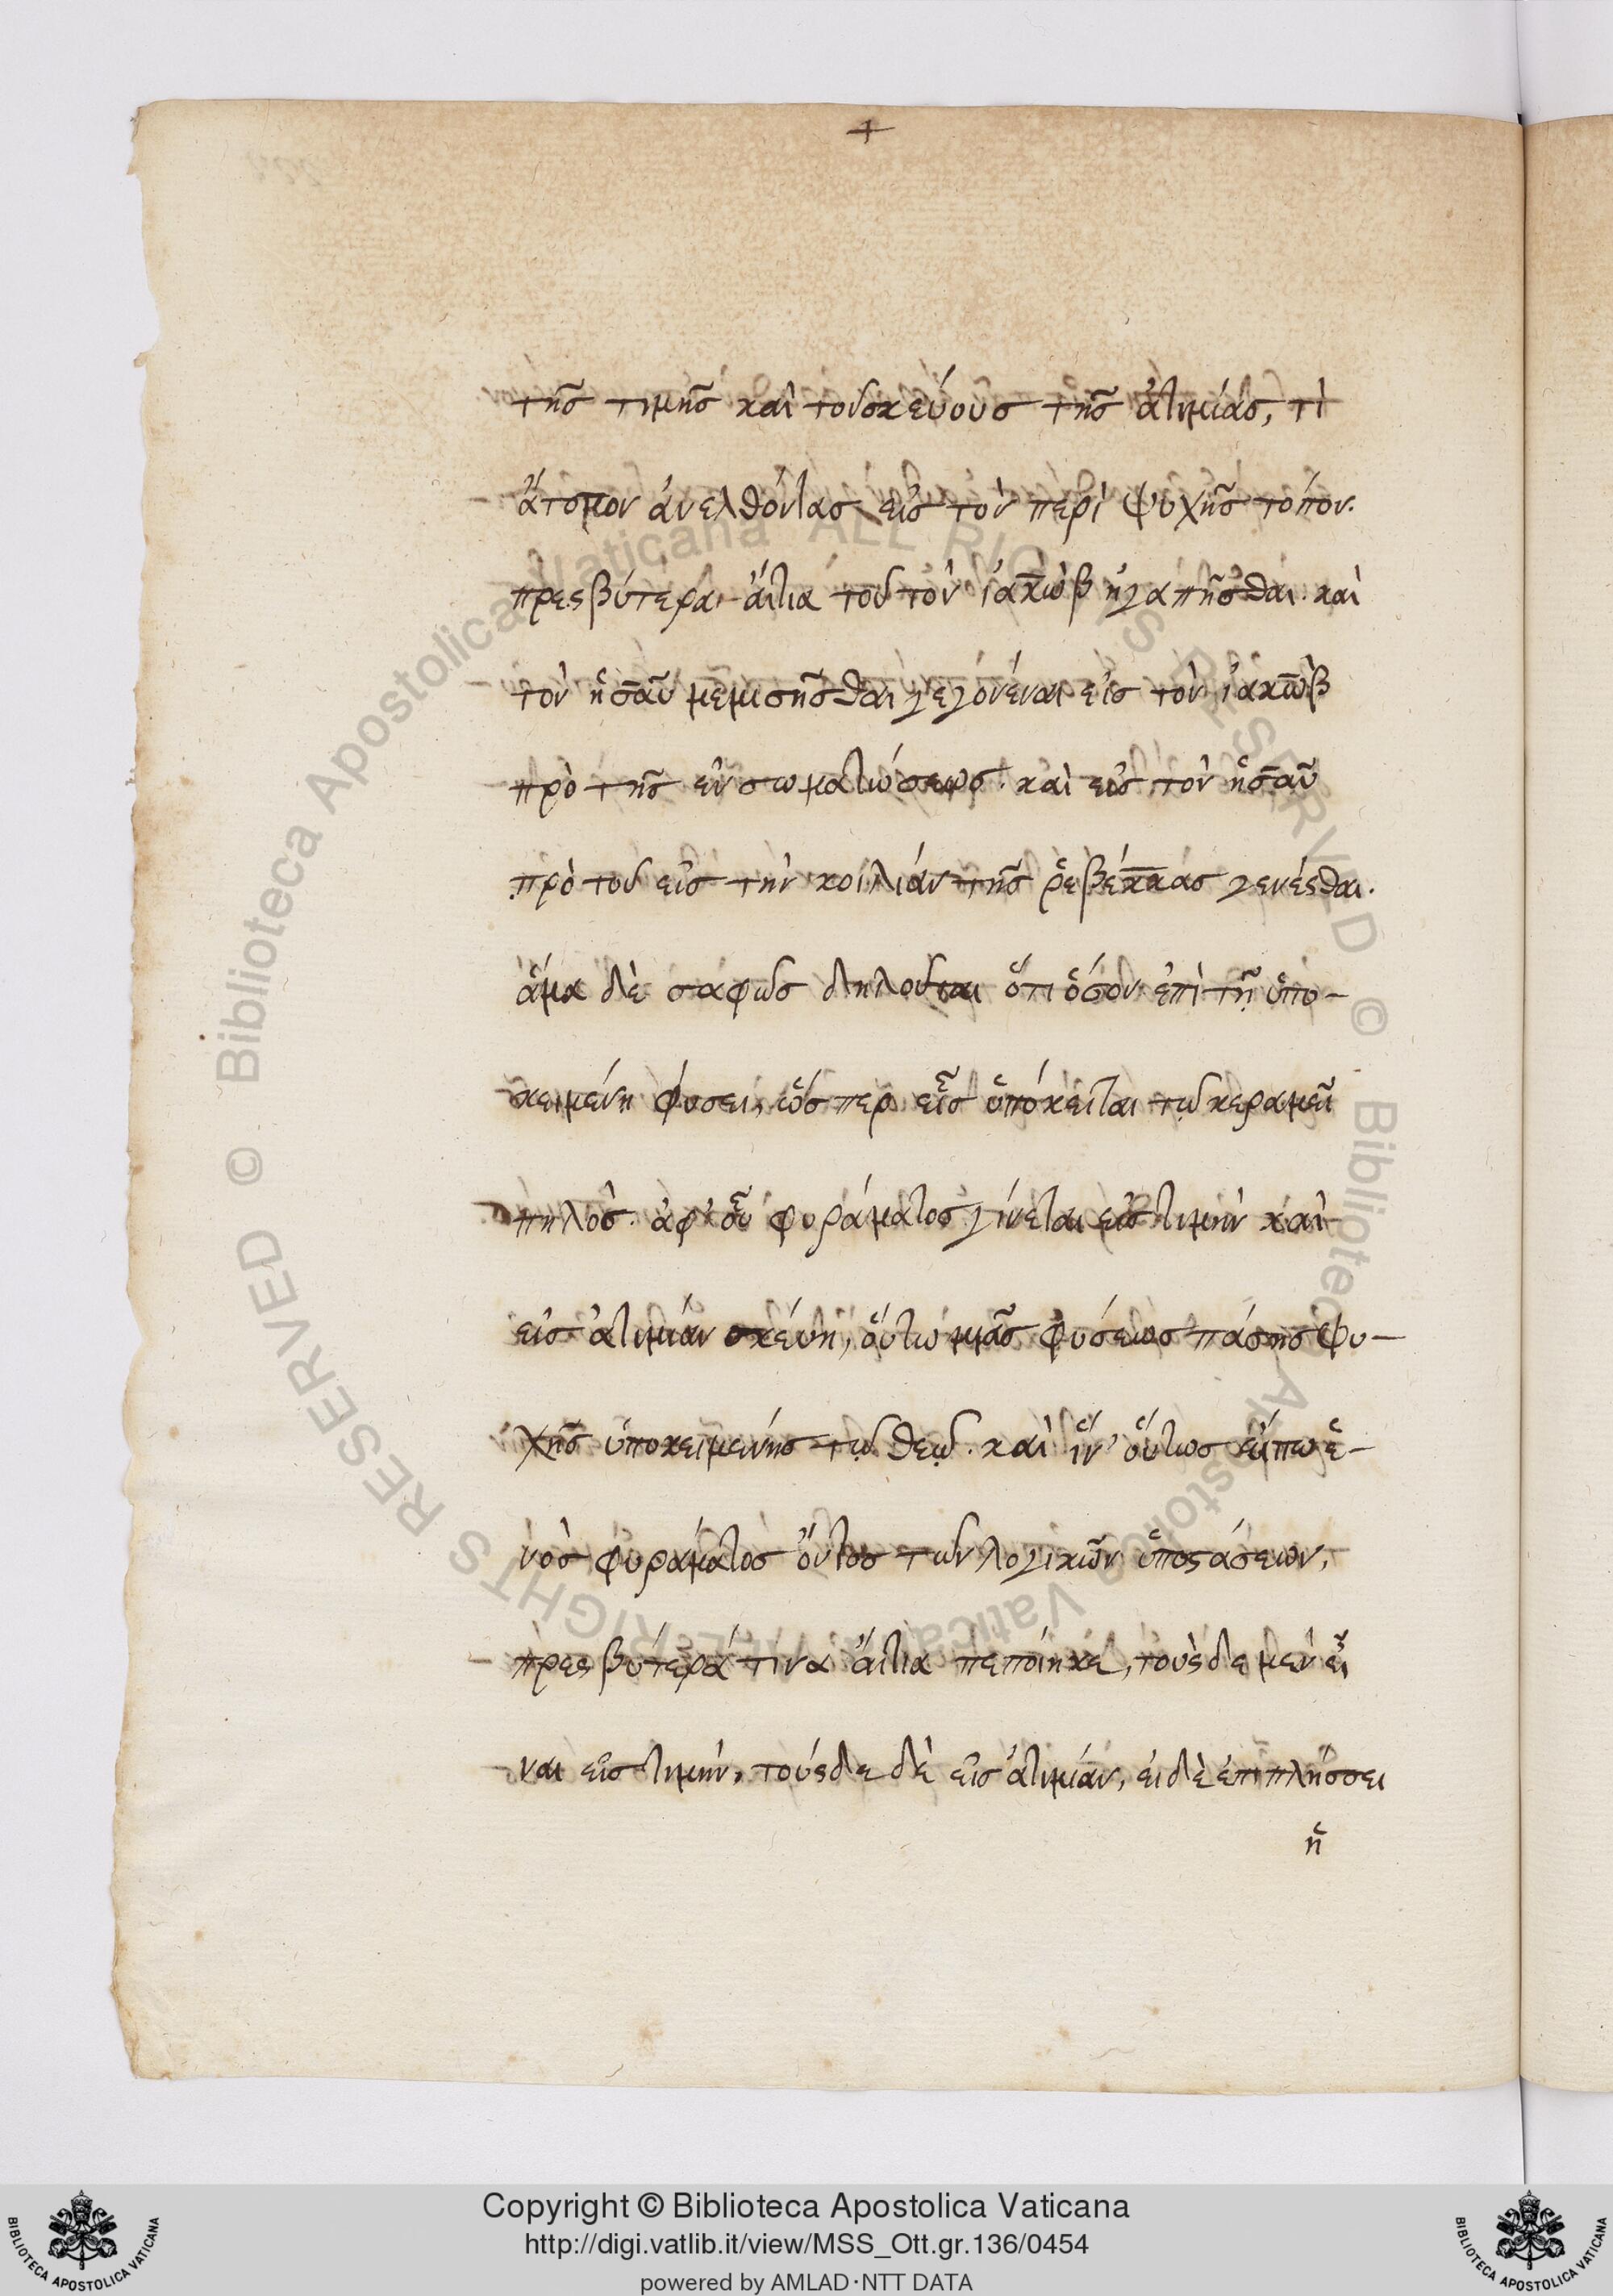 +
τῆς τιμῆς καὶ τοῦ σκεύους τῆς ἀτιμίας, τὶ
ἄτοπον ἀνελθόντας εἰς τὸν περὶ ψυχῆς τόπον.
πρεσβύτερα αἴτια τοῦ τὸν ἰακὼβ ἠγαπῆσθαι. καὶ
τὸν ἡσαῦ μεμισῆσθαι γεγονέναι εἰς τὸν ἰακὼβ
πρὸ τῆς ἐνσωματώσεως. καὶ εἰς τὸν ἡσαῦ
πρὸ τοῦ εἰς τὴν κοιλίαν τῆς ῥεβέκκας γενέσθαι.
ἅμα δὲ σαφῶς δηλοῦται ὅτι ὅσον ἐπὶ τῇ ὑπο-
κειμένη φύσει, ὥσπερ εἷς ὑπόκειται τῷ κεραμεῖ
πηλὸς. ἀφ' οὗ φυράματος γίνεται εἰς τιμὴν καὶ
εἰς ἀτιμίαν σκεύη, οὕτω μιᾶς φύσεως πάσης ψυ-
χῆς ὑποκειμένης τῷ θεῷ. καὶ ἵν' οὕτως εἴπω ἑ-
νὸς φυράματος ὄντος τῶν λογικῶν ὑποστάσεων,
πρεσβύτερά τινα αἴτια πεποίηκε, τοὺς δε μεν εἶ
ναι εἰς τιμὴν, τούς δε δὲ εἰς ἀτιμίαν, εἰ δὲ ἐπιπλήσσει
ἡ
Copyright © Biblioteca Apostolica Vaticana
http://digi.vatlib.it/view/MSS_Ott.gr.136/0454
powered by AMLAD·NTT DATA
BIBLIOTECA APOSTOLICA VATICANA
BIBLIOTECA APOSTOLICA VATICANA
© Biblioteca Apostolica Vaticana ALL RIGHTS RESERVED
© Biblioteca Apostolica Vaticana ALL RIGHTS RESERVED